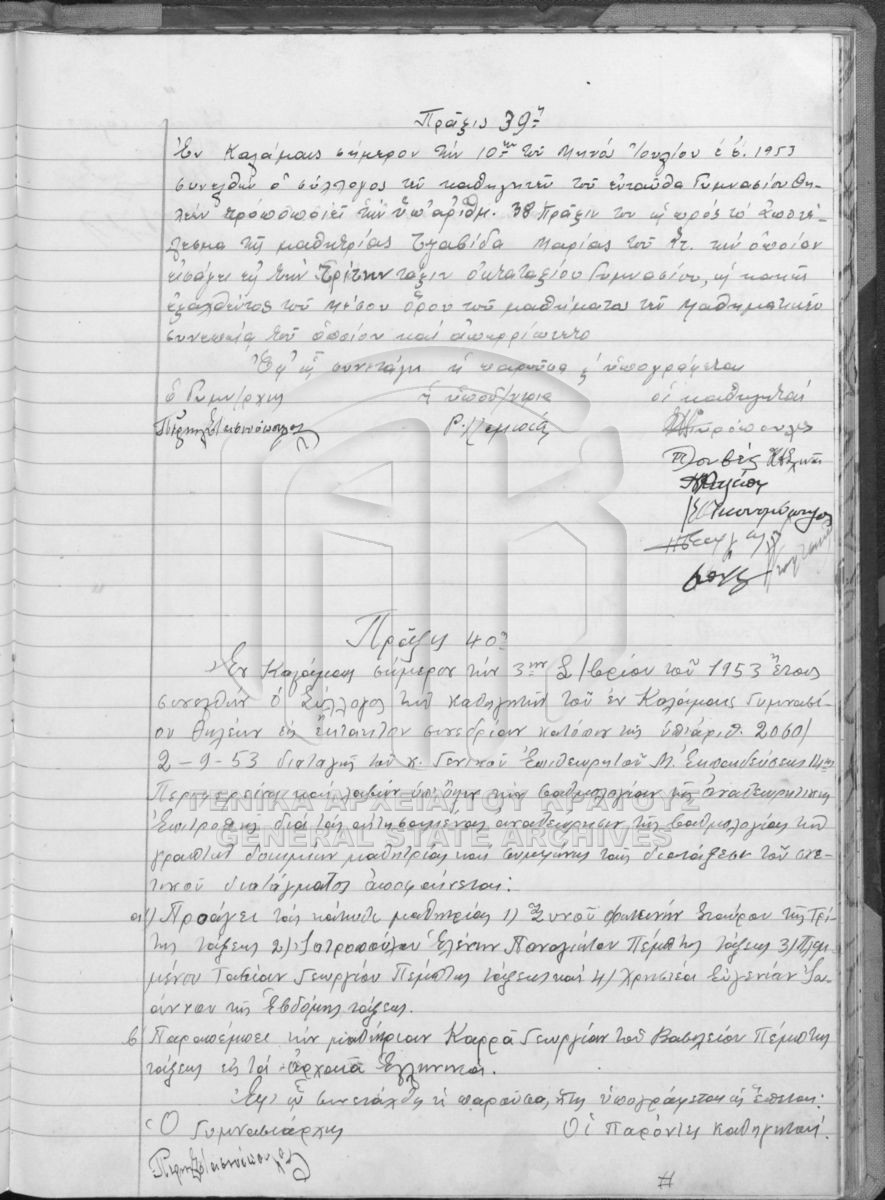 Πρᾶξις 39η
Ἐν Καλάμαις σήμερον τήν 10ην τοῦ μηνός Ἰουλίου ἔ.ἔ. 1953
συνελθών ὁ σύλλογος τῶν καθηγητῶν τοῦ ἐνταῦθα Γυμνασίου Θη-
λέων τροποποιεῖ τήν ὑπ' ἀριθμ. 38 Πρᾶξιν του ὡς πρός τό ἀποτέ-
λεσμα τῆς μαθητρίας Μαρίας τοῦ Στ. τήν ὁποίαν
εἰσάγει εἰς τήν Τρίτην τάξιν ὀκταταξίου Γυμνασίου, ὡς κακῶς
ἐξαχθέντος τοῦ μέσου ὅρου τοῦ μαθήματος τῶν Μαθηματικῶν
συνεπείᾳ τοῦ ὁποίου καί ἀπερρίπτετο
Ἐφ' ᾧ συνετάγη ἡ παροῦσα & ὑπογράφεται
ὁ Γυμν/ρχης ἡ ὑποδ/ντρια οἱ καθηγηταί
Πρᾶξις 40η
Ἐν Καλάμαις σήμερον τήν 3ην Σ/βρίου τοῦ 1953 ἔτους
συνελθών ὁ Σύλλογος τῶν καθηγητῶν τοῦ ἐν Καλάμαις Γυμνασί-
ου Θηλέων εἰς ἔκτακτον συνεδρίαν κατόπιν τῆς ὑπ' ἀριθ. 2060/
2-9-53 διαταγῆς τοῦ κ. Γενικοῦ Ἐπιθεωρητοῦ Μ. Ἐκπαιδεύσεως
Περιφερείας καί λαβών ὑπ' ὄψιν τήν βαθμολογίαν τῆς ἀναθεωρητικῆς
Ἐπιτροπῆς διά τάς αἰτησαμένας ἀναθεώρησιν τῆς βαθμολογίας τῶν
γραπτῶν δοκιμίων μαθητρίας καί συμφώνως ταῖς διατάξεσι τοῦ σχε-
τικοῦ διατάγματος ἀποφαίνεται:
α) Προάγει τάς κάτωθι μαθητρίας 1) Φωτεινήν Σταύρου τῆς Τρί-
της τάξεως 2) Ἰατροπούλου Ἑλένην Παναγιώτου Πέμπτης τάξεως 3)
Γεωργίου Πέμπτης τάξεως καί 4) Χρηστέα Εὐγενίαν Ἰω-
άννου τῆς Ἑβδόμης τάξεως.
β) Παραπέμπει τήν μαθήτριαν Καρρᾶ Γεωργίαν τοῦ Βασιλείου Πέμπτης
τάξεως εἰς τά Ἀρχαῖα Ἑλληνικά.
Ἐφ' ᾧ συνετάχθη ἡ παροῦσα, ἥτις ὑπογράφεται ὡς ἕπεται:
Ὁ Γυμνασιάρχης Οἱ Παρόντες καθηγηταί
ΓΕΝΙΚΑ ΑΡΧΕΙΑ ΤΟΥ ΚΡΑΤΟΥΣ
GENERAL STATE ARCHIVES